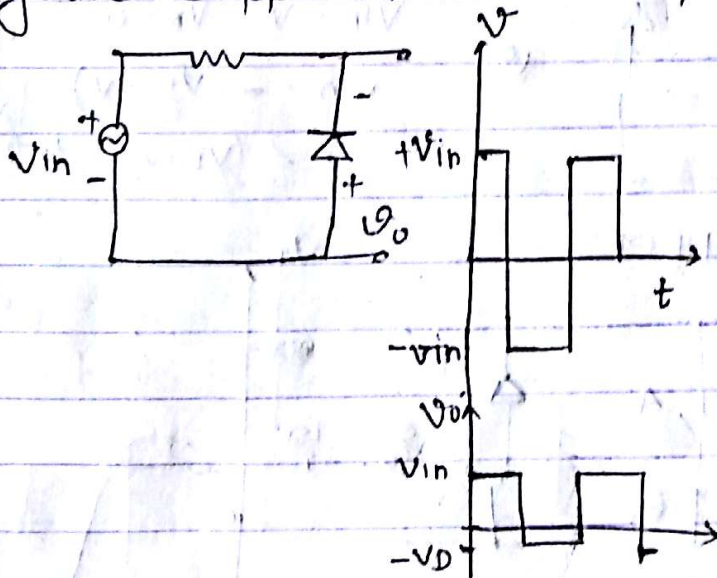 v
+
Vin
-
-
+
vo
+Vin
t
-vin
vo
Vin
-VD